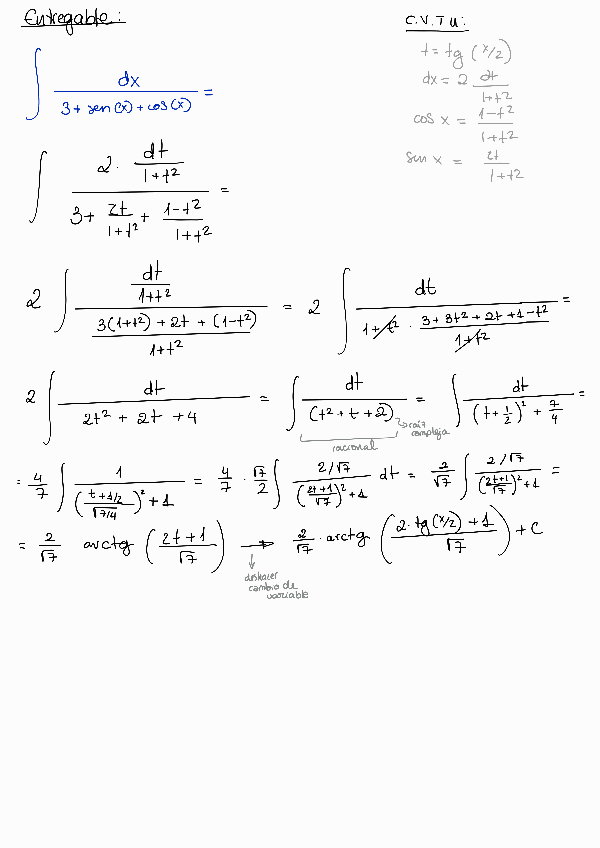 Entregable:
∫ dx / (3 + sen(x) + cos(x)) =
C.V.T.U:
t = tg (x/2)
dx = 2 dt / (1+t²)
cos x = (1-t²) / (1+t²)
sen x = 2t / (1+t²)
∫ (2 · dt/(1+t²)) / (3 + 2t/(1+t²) + (1-t²)/(1+t²)) =
2 ∫ (dt/(1+t²)) / ((3(1+t²) + 2t + (1-t²))/(1+t²)) = 2 ∫ dt / (1+t² · (3+3t²+2t+1-t²)/(1+t²)) =
2 ∫ dt / (2t² + 2t + 4) = ∫ dt / (t² + t + 2) = ∫ dt / ((t+1/2)² + 7/4) =
raíz compleja
racional
= 4/7 ∫ 1 / (((t+1/2)/√7/4)² + 1) = 4/7 · √7/2 ∫ (2/√7) / (((2t+1)/√7)² + 1) dt = 2/√7 ∫ (2/√7) / (((2t+1)/√7)² + 1) =
= 2/√7 arctg ((2t+1)/√7) → 2/√7 · arctg ((2·tg(x/2)+1)/√7) + C
deshacer
cambio de
variable